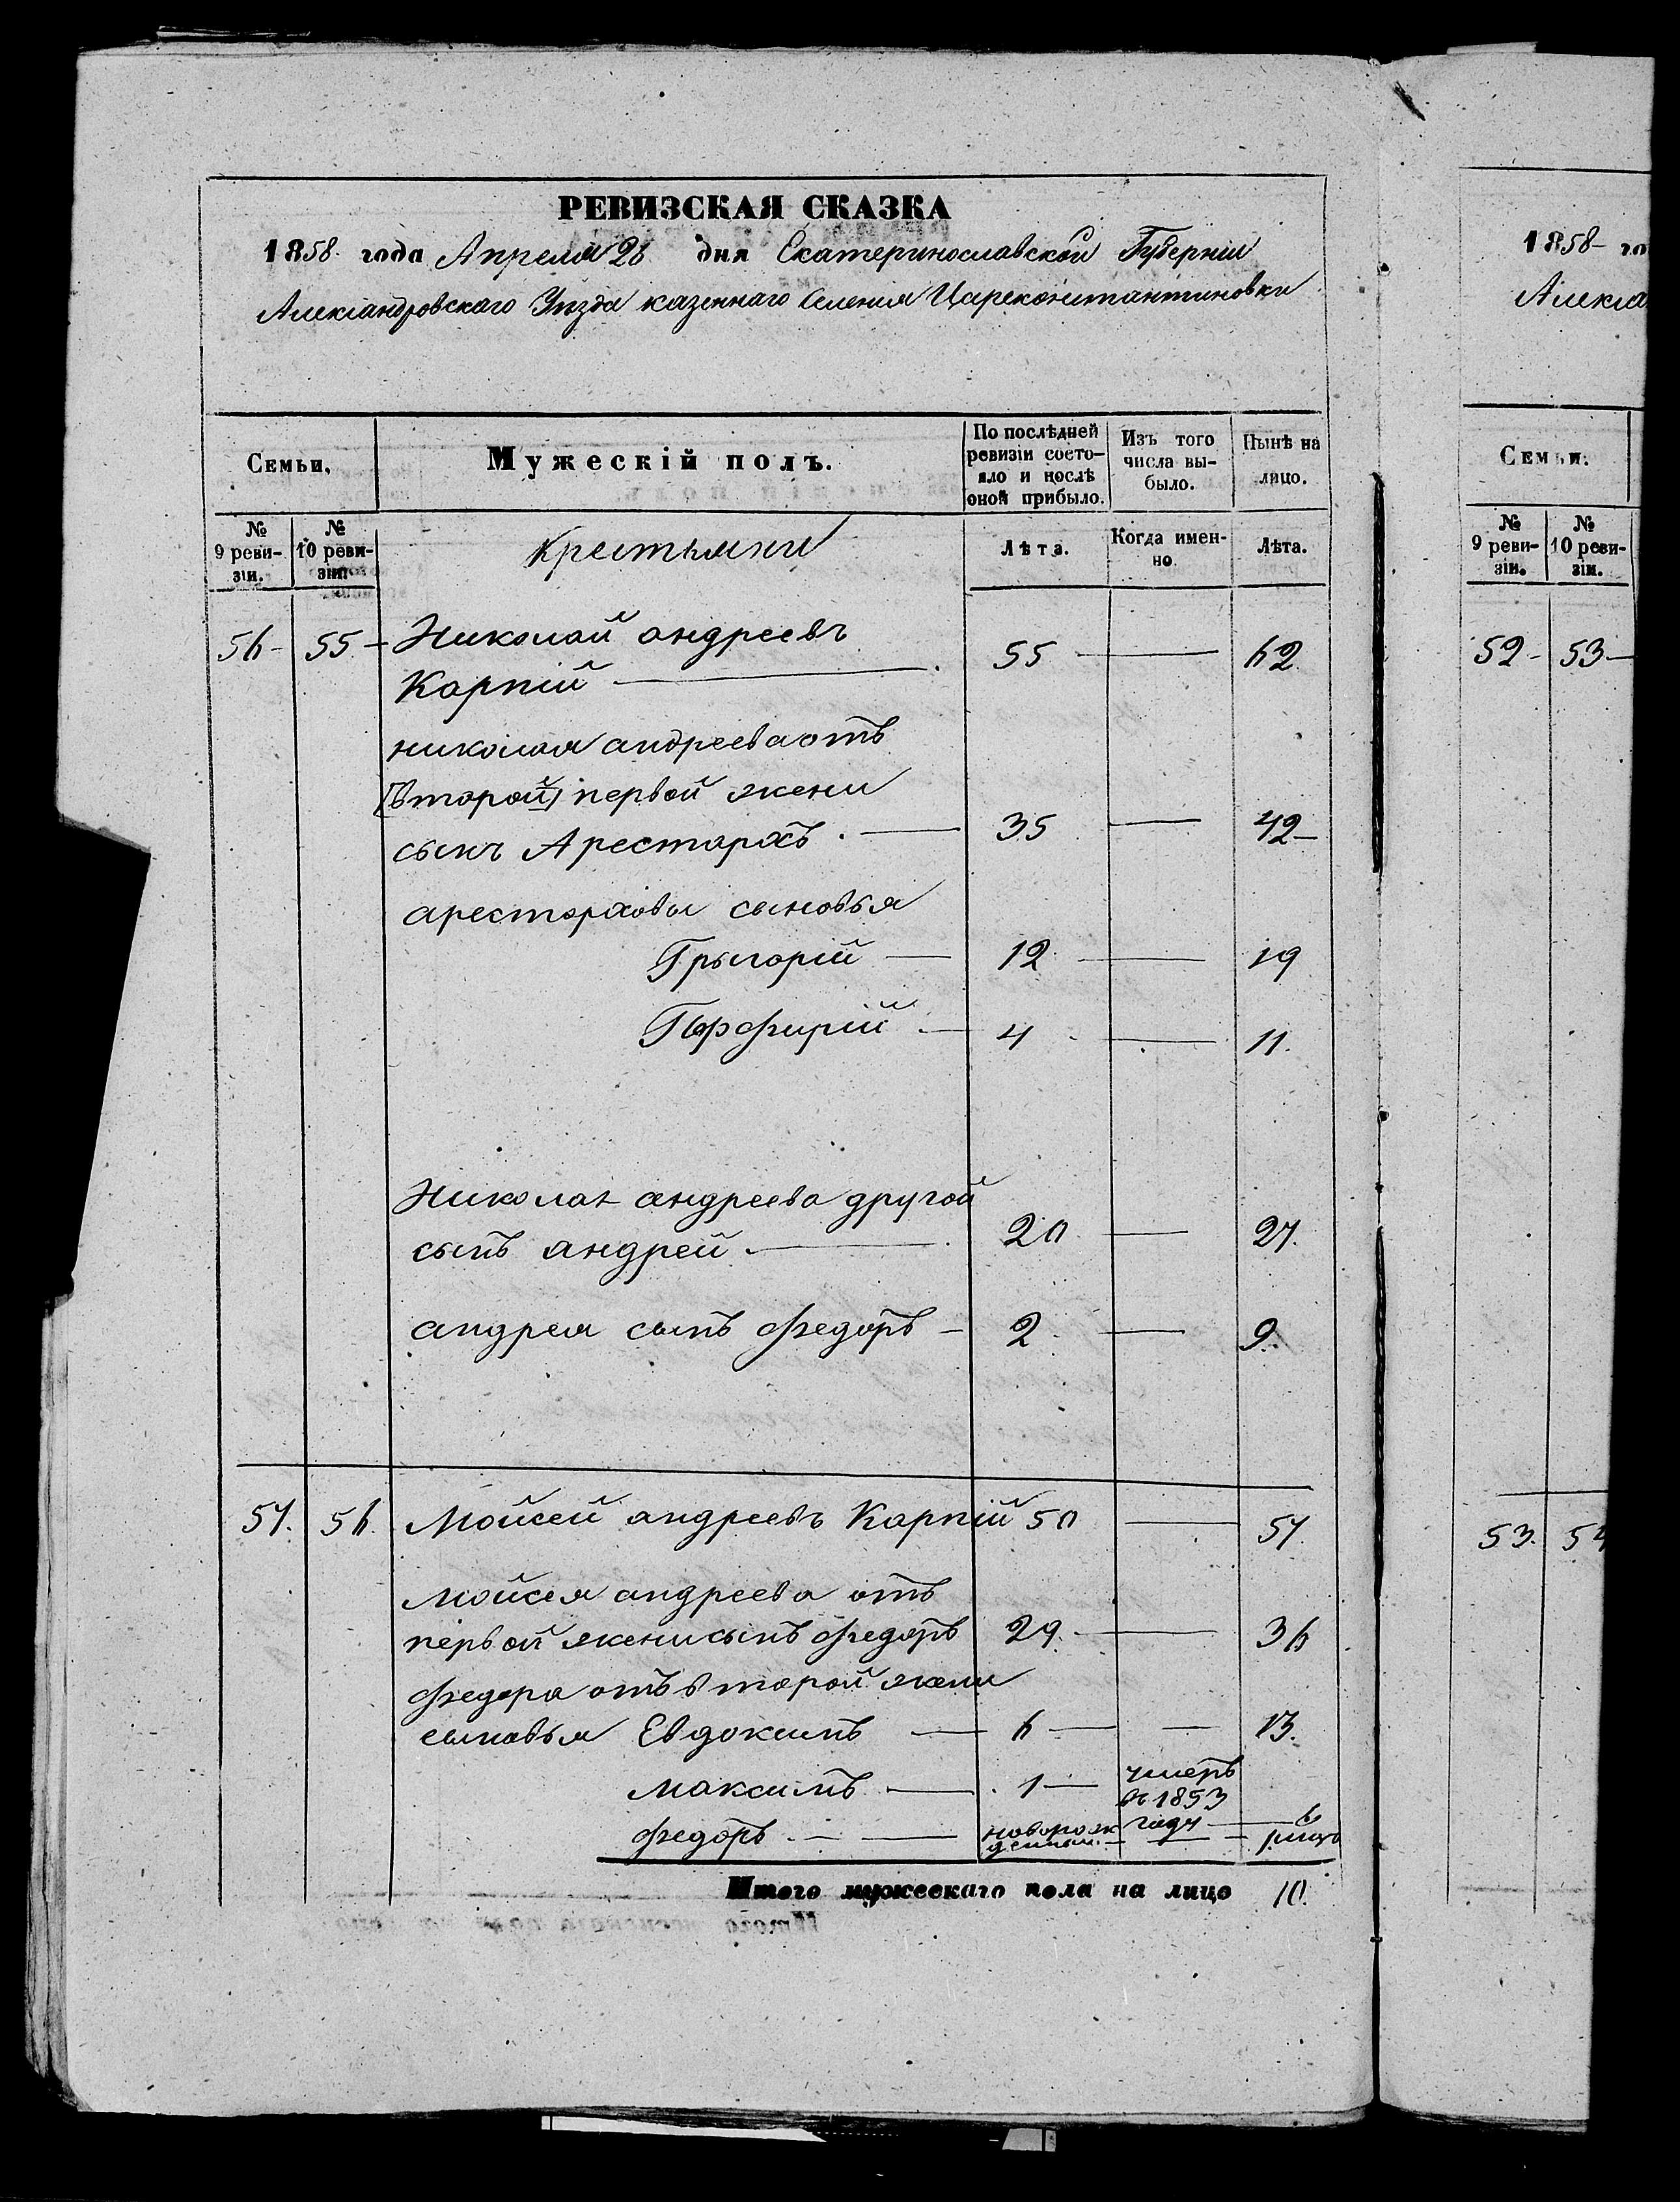 РЕВИЗСКАЯ СКАЗКА
1858 года Апреля 26 дня Екатеринославской Губерніи
Александровскаго Уѣзда казеннаго Селенія Цареконстантиновки
Семьи.
Мужескій полъ.
По послѣдней ревизіи состояло и послѣ оной прибыло.
Изъ того числа выбыло.
Нынѣ на лицо.
№ 9 ревизіи.
№ 10 ревизіи.
Крестьяни
Лѣта.
Когда именно.
Лѣта.
56 - 55 - Николай андреевъ
Карпій — 55 — 62
николая андреева отъ
[второй] первой жени
сынъ Арестархъ. — 35 — 42 -
арестарховы сыновья
Грыгорій — 12 — 19
Порфирій — 4 — 11.
Николая андреева другой
сынъ андрей. — 20 — 27.
андрея сынъ федоръ - 2 — 9.
57. 56. Мойсей андреевъ Карпій 50 — 57.
Мойсея андреева отъ
первой жени сынъ федоръ 29. — 36
федора отъ второй жени
сыновья Евдокимъ — 6 — — 13.
максимъ — 1 — умеръ въ 1853 году —
федоръ. — — новорожденный. — —
Итого мужескаго пола на лицо 10.
1858 - го
Алекса
Семьи.
№ 9 ревизіи.
№ 10 ревизіи.
52 - 53 -
53. 54